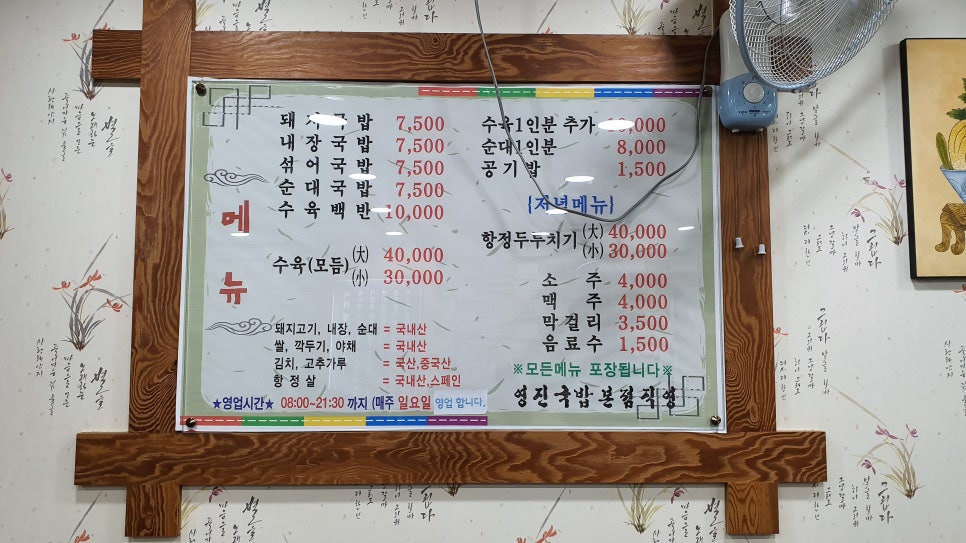 메뉴
돼지국밥 7,500
내장국밥 7,500
섞어국밥 7,500
순대국밥 7,500
수육백반 10,000
수육(모듬) (大) 40,000
(小) 30,000
돼지고기, 내장, 순대 = 국내산
쌀, 깍두기, 야채 = 국내산
김치, 고추가루 = 국산,중국산
항정살 = 국내산,스페인
★영업시간★ 08:00~21:30 까지 (매주 일요일 영업 합니다.
수육1인분 추가
순대1인분 8,000
공기밥 1,500
{저녁메뉴}
항정두루치기 (大) 40,000
(小) 30,000
소주 4,000
맥주 4,000
막걸리 3,500
음료수 1,500
※모든메뉴 포장됩니다※
영진국밥본점직영